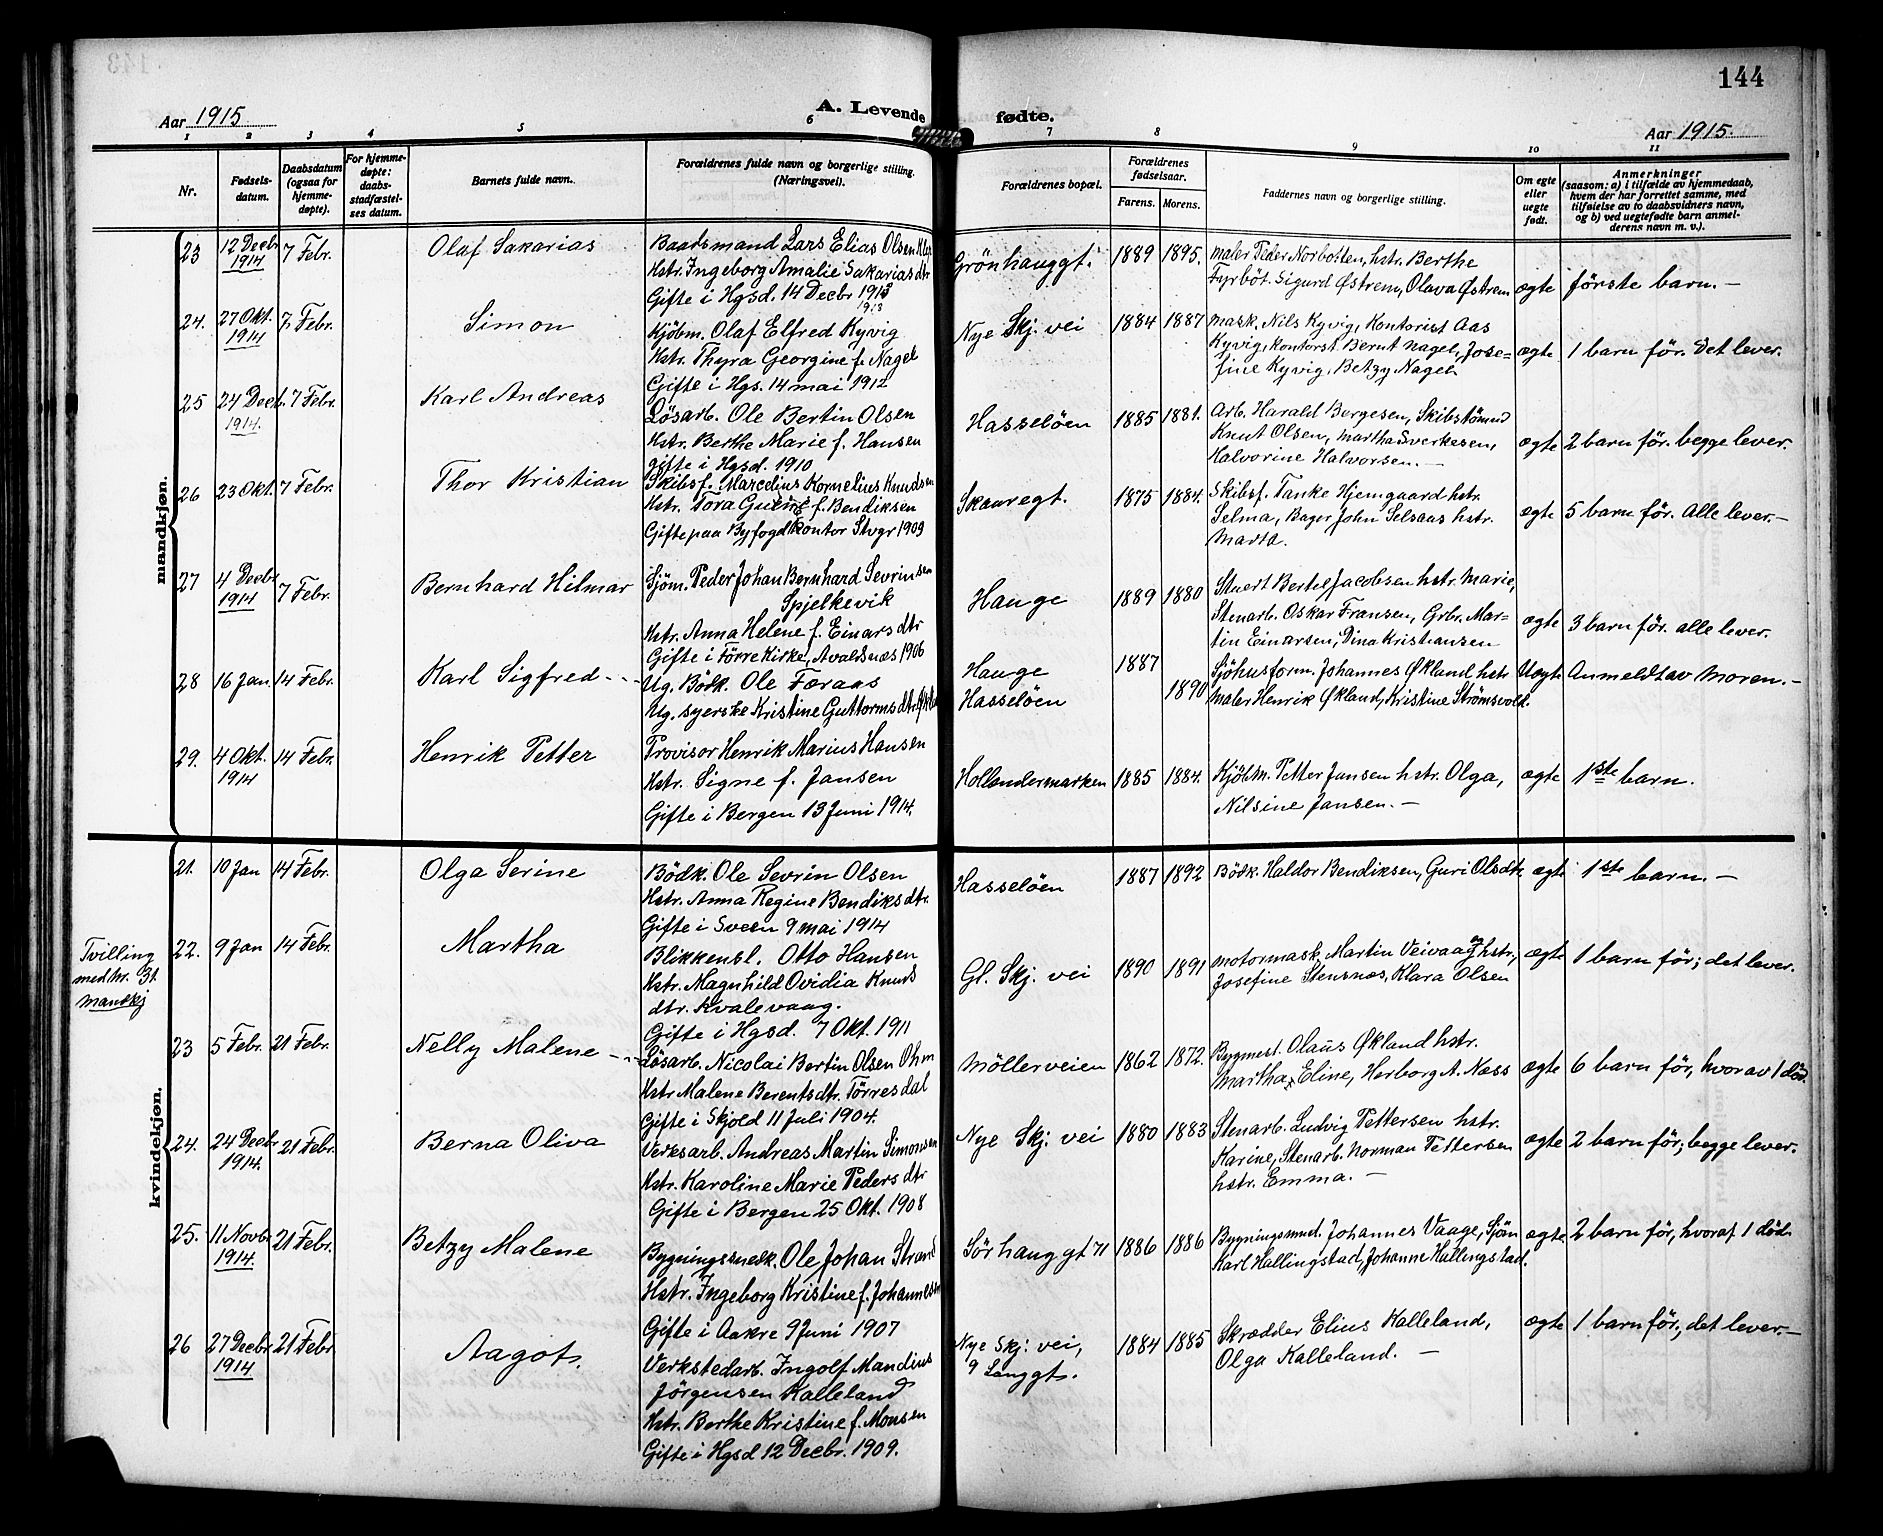 144
Aar 1915
A. Levende fødte.
Aar 1915.
1 2 3 4 5 6 7 8 9 10 11
Nr.
Fødsels-
datum.
Daabsdatum
(ogsaa for
hjemme-
døpte).
For hjemme-
døpte:
daabs-
stadfæstel-
ses datum.
Barnets fulde navn.
Forældrenes fulde navn og borgerlige stilling.
(Næringsvei).
Forældrenes bopæl.
Forældrenes
fødselsaar.
Farens. Morens.
Faddernes navn og borgerlige stilling.
Om egte
eller
uegte
født.
Anmerkninger
(saasom: a) i tilfælde av hjemmedaab,
hvem der har forrettet samme, med
tilføielse av to daabsvidners navn,
og b) ved uegtefødte barn anmel-
derens navn m. v.).
mandkjøn.
23
12 Decbr
1914
7 Febr.
Olaf Sakarias
Baadsmand Lars Elias Olsen
Hstr. Ingeborg Amalie Sakariasdtr
Gifte i Hgsd. 14 Decbr 1913
1913
Grönhauggt.
1889 1895.
Maler Peder Norbotten, hstr. Berthe
Fyrböt. Sigurd Østrem, Olava Østrem
ægte
förste barn. –
24.
27 Okt.
1914
7 Febr.
Simon
Kjöbm. Olaf Elfred Kyvig
Hstr. Thyra Georgine f. Nagel
Gifte i Hgs. 14 mai 1912
Nye Skj. vei
1884 1887
Mask. Nils Kyvig, Kontorist Aas
Kyvig, Kontorst. Bernt Nagel, Jose-
fine Kyvig, Betzy Nagel.
ægte
1 barn för. Det lever.
25
24 Decb.
1914.
7 Febr.
Karl Andreas
Lösarb. Ole Bertin Olsen
Hstr. Berthe Marie f. Hansen
gifte i Hgsd. 1910
Hasselöen
1885 1881.
Arb. Harald Borgesen, Skibstömmd
Knut Olsen, Martha Sverkesen,
Halvorine Halvorsen. –
ægte
2 barn för. begge lever.
26
23 Okt.
7 Febr.
Thor Kristian
Skibsf. Marcelius Kornelius Knudsen
Hstr. Tora f. Bendiksen
Gifte paa Byfogdkontor Stvgr 1909
Skaaregt.
1875 1884.
Skibsf. Tanke Hjemgaard hstr.
Selma, Bager John Selsaas hstr.
Marta.
ægte
5 barn för. Alle lever. –
27
4 Decbr
1914
7 Febr.
Bernhard Hilmar
Sjöm. Peder Johan Bernhard Sevrinsen
Spjelkevik
Hstr. Anna Helene f. Einarsdtr
Gifte i Förre Kirke, Avaldsnæs 1906
Hauge
1889 1880
Stuert Bertel Jacobsen hstr. Marie,
Stenarb. Oskar Fransen, Grbr. Mar-
tin Einarsen, Dina Kristiansen
ægte
3 barn för. alle lever.
28
16 Jan.
14 Febr.
Karl Sigfred
Ug. Bödk. Ole Færaas
Ug. syerske Kristine Guttormsdtr.
Hauge
Hasselöen
1887
1890
Sjöhusform. Johannes Økland hstr
Maler Henrik Økland, Kristine Strömsvold.
Uegte
Anmeldt av Moren. –
29.
4 Okt.
1914
14 Febr.
Henrik Petter
Provisor Henrik Marius Hansen
Hstr. Signe f. Jansen
Gifte i Bergen 13 Juni 1914.
Hollendermarken
1885 1884.
Kjöbm. Petter Jansen hstr. Olga,
Nilsine Jansen. –
ægte
1ste barn.
kvindekjøn.
21.
10 Jan
14 Febr.
Olga Serine
Bödk. Ole Sevrin Olsen
Hstr. Anna Regine Bendiksdtr.
Gifte i Sveen 9 mai 1914
Hasselöen
1887 1892
Bödk. Haldor Bendiksen, Guri Olsdtr.
ægte
1ste barn. –
Tvilling
med nr. 31
mandkj
22.
9 Jan
14 Febr.
Martha
Blikkensl. Otto Hansen
Hstr. Magnhild Ovidia Knuds
dtr. Kvalevaag.
Gifte i Hgsd. 7 Okt. 1911
Gl. Skj. vei
1890 1891
Motormask. Martin Veivaag og hstr,
Josefine Stensnæs, Klara Olsen
ægte
1 barn för; det lever.
23
5 Febr.
21 Febr.
Nelly Malene
Lösarb. Nicolai Bertin Olsen Ohm
Hstr Malene Berentsdtr. Törresdal
Gifte i Skjold 11 Juli 1904.
Möllerveien
1862 1872.
Bygmest. Olaus Økland hstr.
Martha, Eline, Herborg A. Næss
ægte
6 barn för, hvorav 1 död.
24.
24 Decbr
1914.
21 Febr.
Berna Oliva
Verksarb. Andreas Martin Simonsen
Hstr. Karoline Marie Pedersdtr
Gifte i Bergen 25 Okt. 1908
Nye Skj. vei
1880 1883
Stenarb. Ludvig Pettersen hstr.
Karine, Stenarb. Norman Pettersen
hstr. Emma. –
ægte
2 barn för; begge lever.
25.
11 Novbr
1914.
21 Febr.
Betzy Malene
Bygningssnedk. Ole Johan Strand
Hstr. Ingeborg Kristine f. Johannesen
Gifte i Aakre 9 Juni 1907
Sörhauggt 71
1886 1886
Bygningssnd. Johannes Vaage, Sjöm
Karl Hallingstad, Johanne Hallingstad.
ægte
2 barn för, hvoraf 1 död.
26
27 Decbr
1914
21 Febr
Aagot.
Verkstedarb. Ingolf Mandius
Jörgensen Kalleland
Hstr. Berthe Kristine f. Monsen
Gifte i Hgsd 12 Decbr. 1909.
Nye Skj. vei,
9 Langgt.
1884 1885
Skrædder Elius Kalleland,
Olga Kalleland. –
ægte
1 barn för, det lever. –